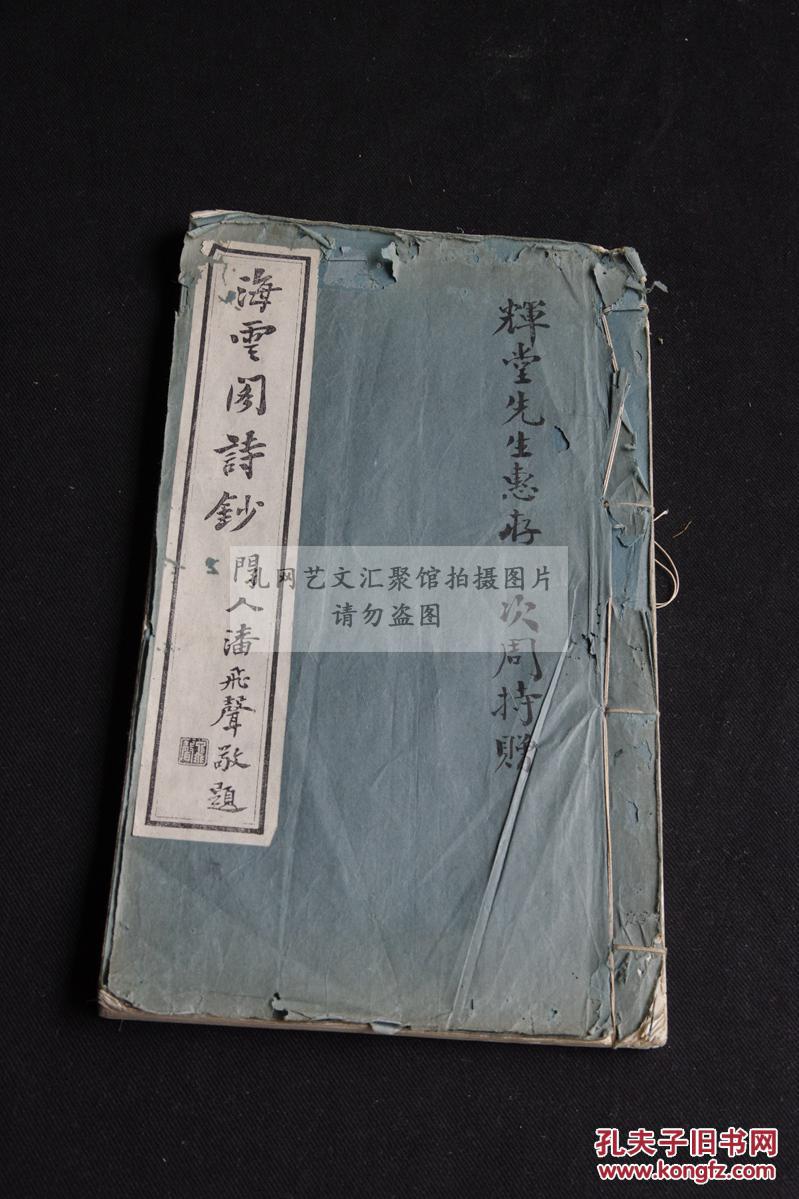 輝堂先生惠存 次周持贈
海雲阁詩鈔
閩人潘飛聲敬題
孔网艺文汇聚馆拍摄图片
请勿盗图
孔夫子旧书网
www.kongfz.com